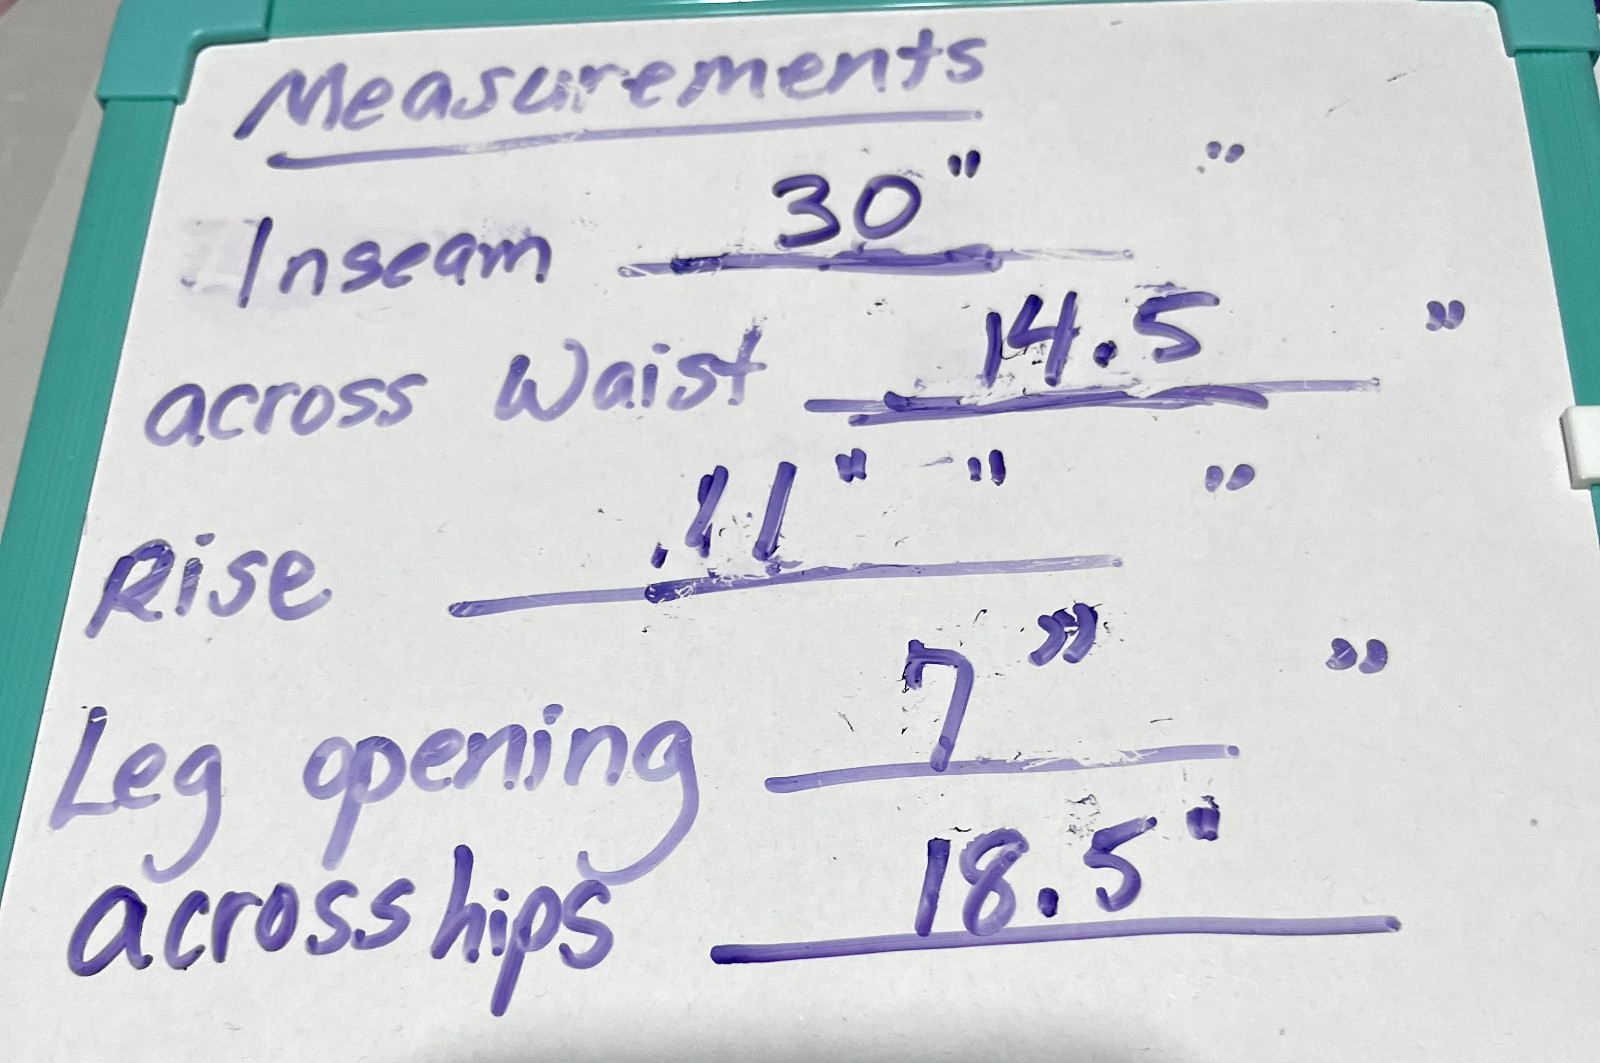 Measurements
Inseam 30" "
across Waist 14.5 "
Rise .11" - " "
Leg opening 7" "
across hips 18.5"